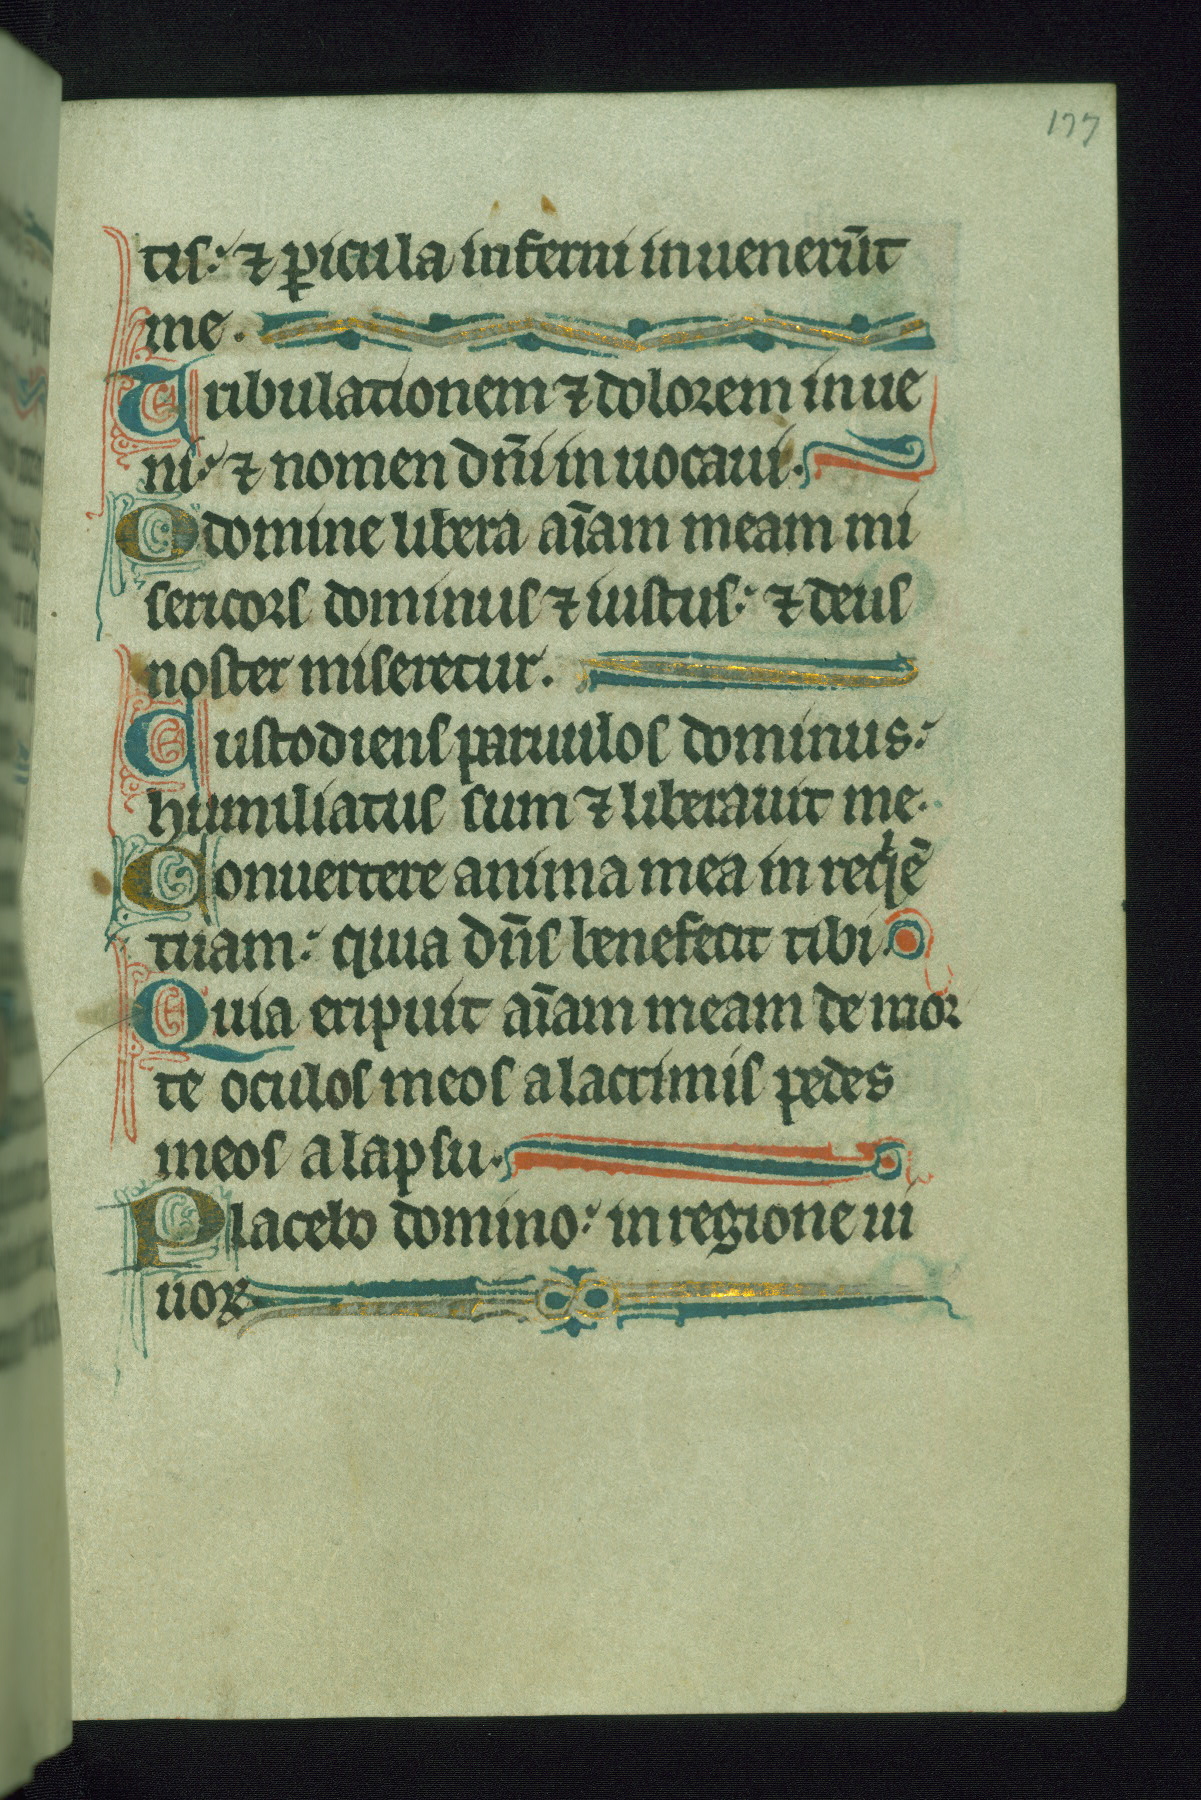 177
tis: ⁊ ꝑicula inferni inueneru̅t
me.
Tribulationem ⁊ dolorem inue
ni: ⁊ nomen dn̅i inuocaui.
O domine libera ai̅am meam mi
sericors dominus ⁊ iustus: ⁊ deus
noster miseretur.
Custodiens paruulos dominus:
humiliatus sum ⁊ liberauit me.
Conuertere anima mea in reqͥe̅
tuam: quia dn̅s benefecit tibi.
Quia eripuit ai̅am meam de mor
te oculos meos a lacrimis pedes
meos a lapsu.
Placebo domino: in regione ui
uoꝝ